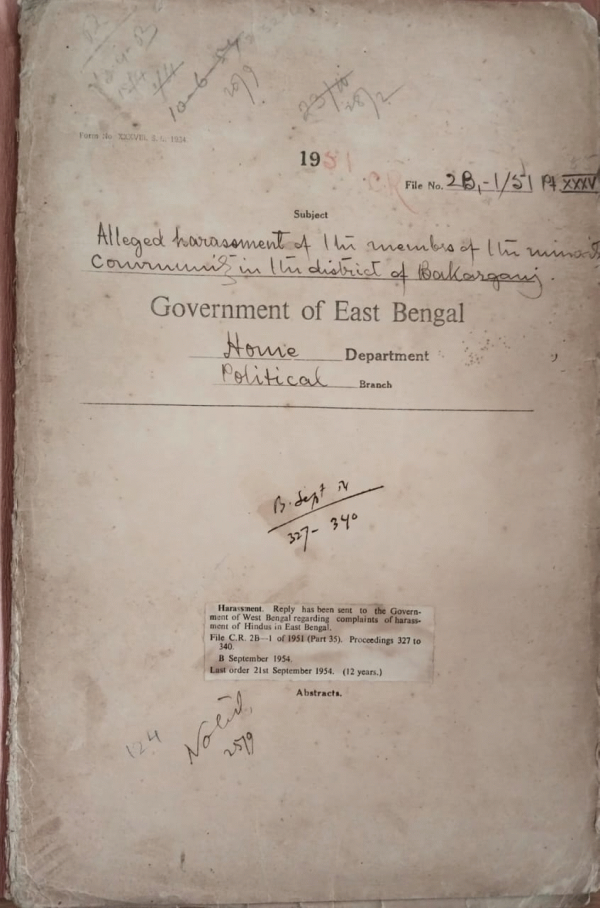 10-6-54
20/9
23/10
28/2
Form No. XXXVIII, S. G. 1954
1951
C.R.
File No. 2B,-1/51 Pt XXXV
Subject
Alleged harassment of the members of the minority
Community in the district of Bakarganj.
Government of East Bengal
Home Department
Political Branch
B. Sept 54
327-340
Harassment. Reply has been sent to the Govern-
ment of West Bengal regarding complaints of harass-
ment of Hindus in East Bengal.
File C.R. 2B—1 of 1951 (Part 35). Proceedings 327 to
340.
B September 1954.
Last order 21st September 1954. (12 years.)
Abstracts.
124
Noted
25/9